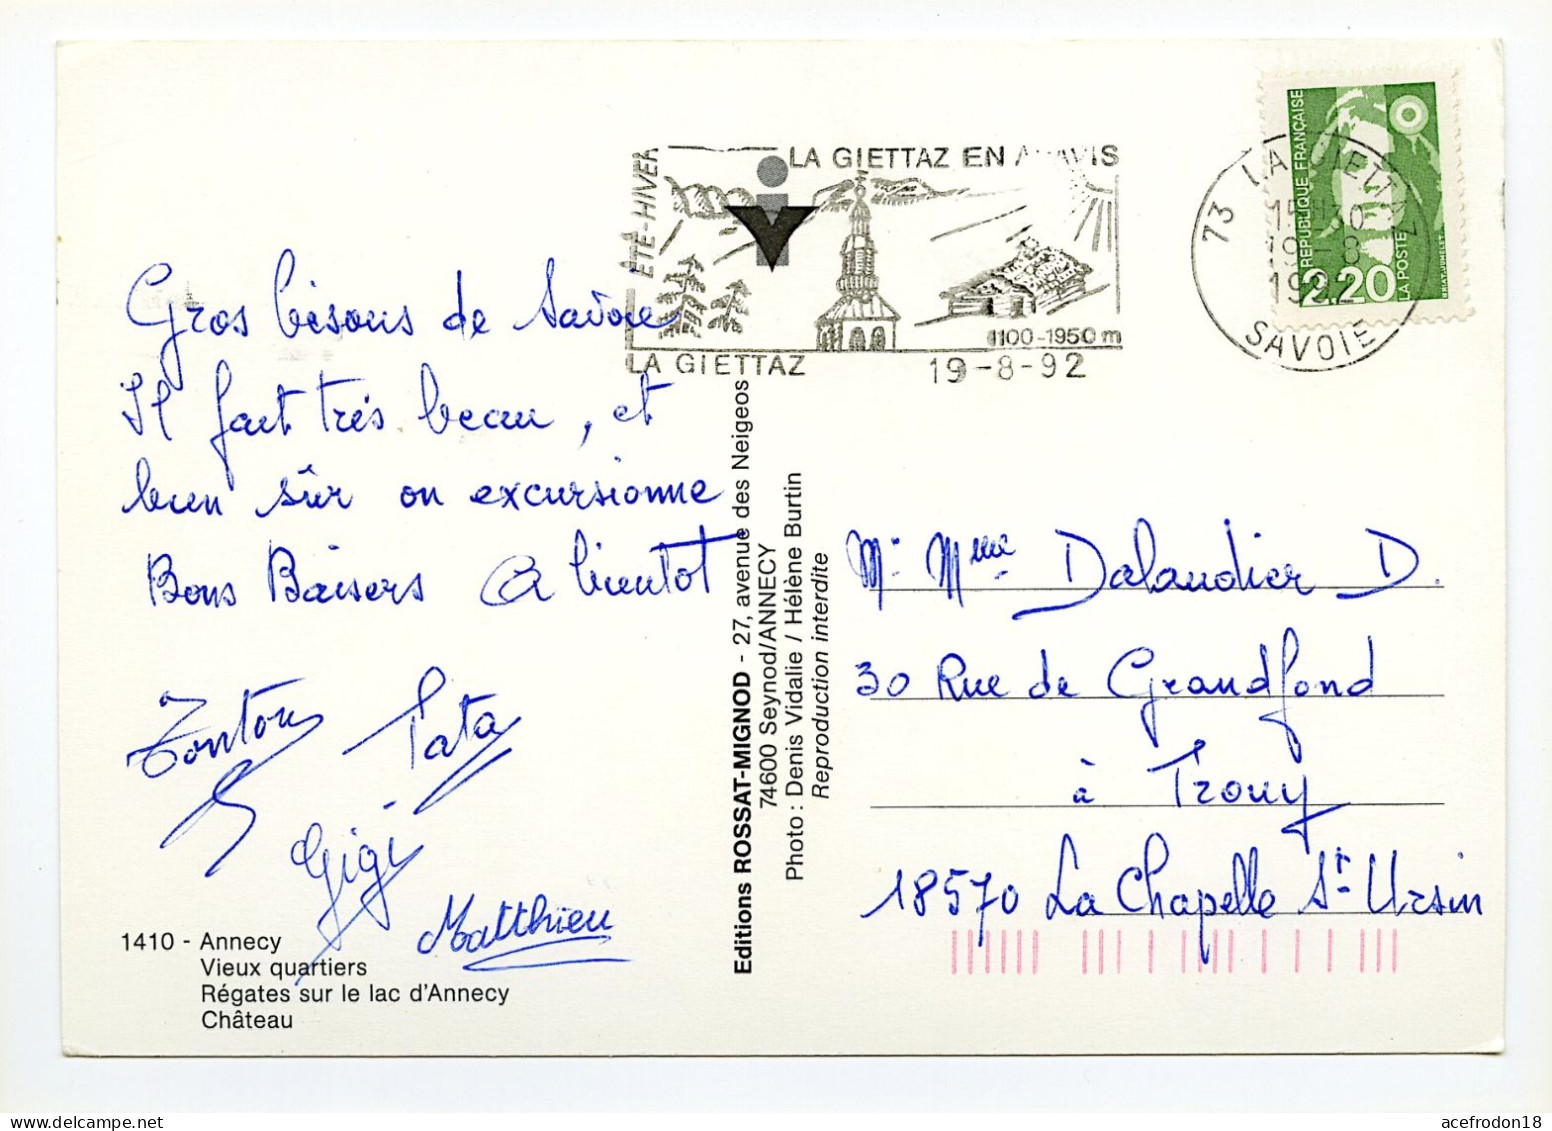 ÉTÉ-HIVER
LA GIETTAZ EN ARAVIS
1100-1950 m
LA GIETTAZ
19-8-92
73 LA GIETTAZ
15H30
19-8
1992
SAVOIE
REPUBLIQUE FRANÇAISE
2,20
LA POSTE
Gros bisous de Savoie
Il fait très beau, et
bien sûr on excursionne
Bons Baisers A bientôt
Tonton
Tata
Gigi
Matthieu
1410 - Annecy
Vieux quartiers
Régates sur le lac d'Annecy
Château
Editions ROSSAT-MIGNOD - 27, avenue des Neigeos
74600 Seynod/ANNECY
Photo : Denis Vidalie / Hélène Burtin
Reproduction interdite
Mr Mme Dalaudier D.
30 Rue de Grandfond
à Trouy
18570 La Chapelle St Ursin
acefrodon18